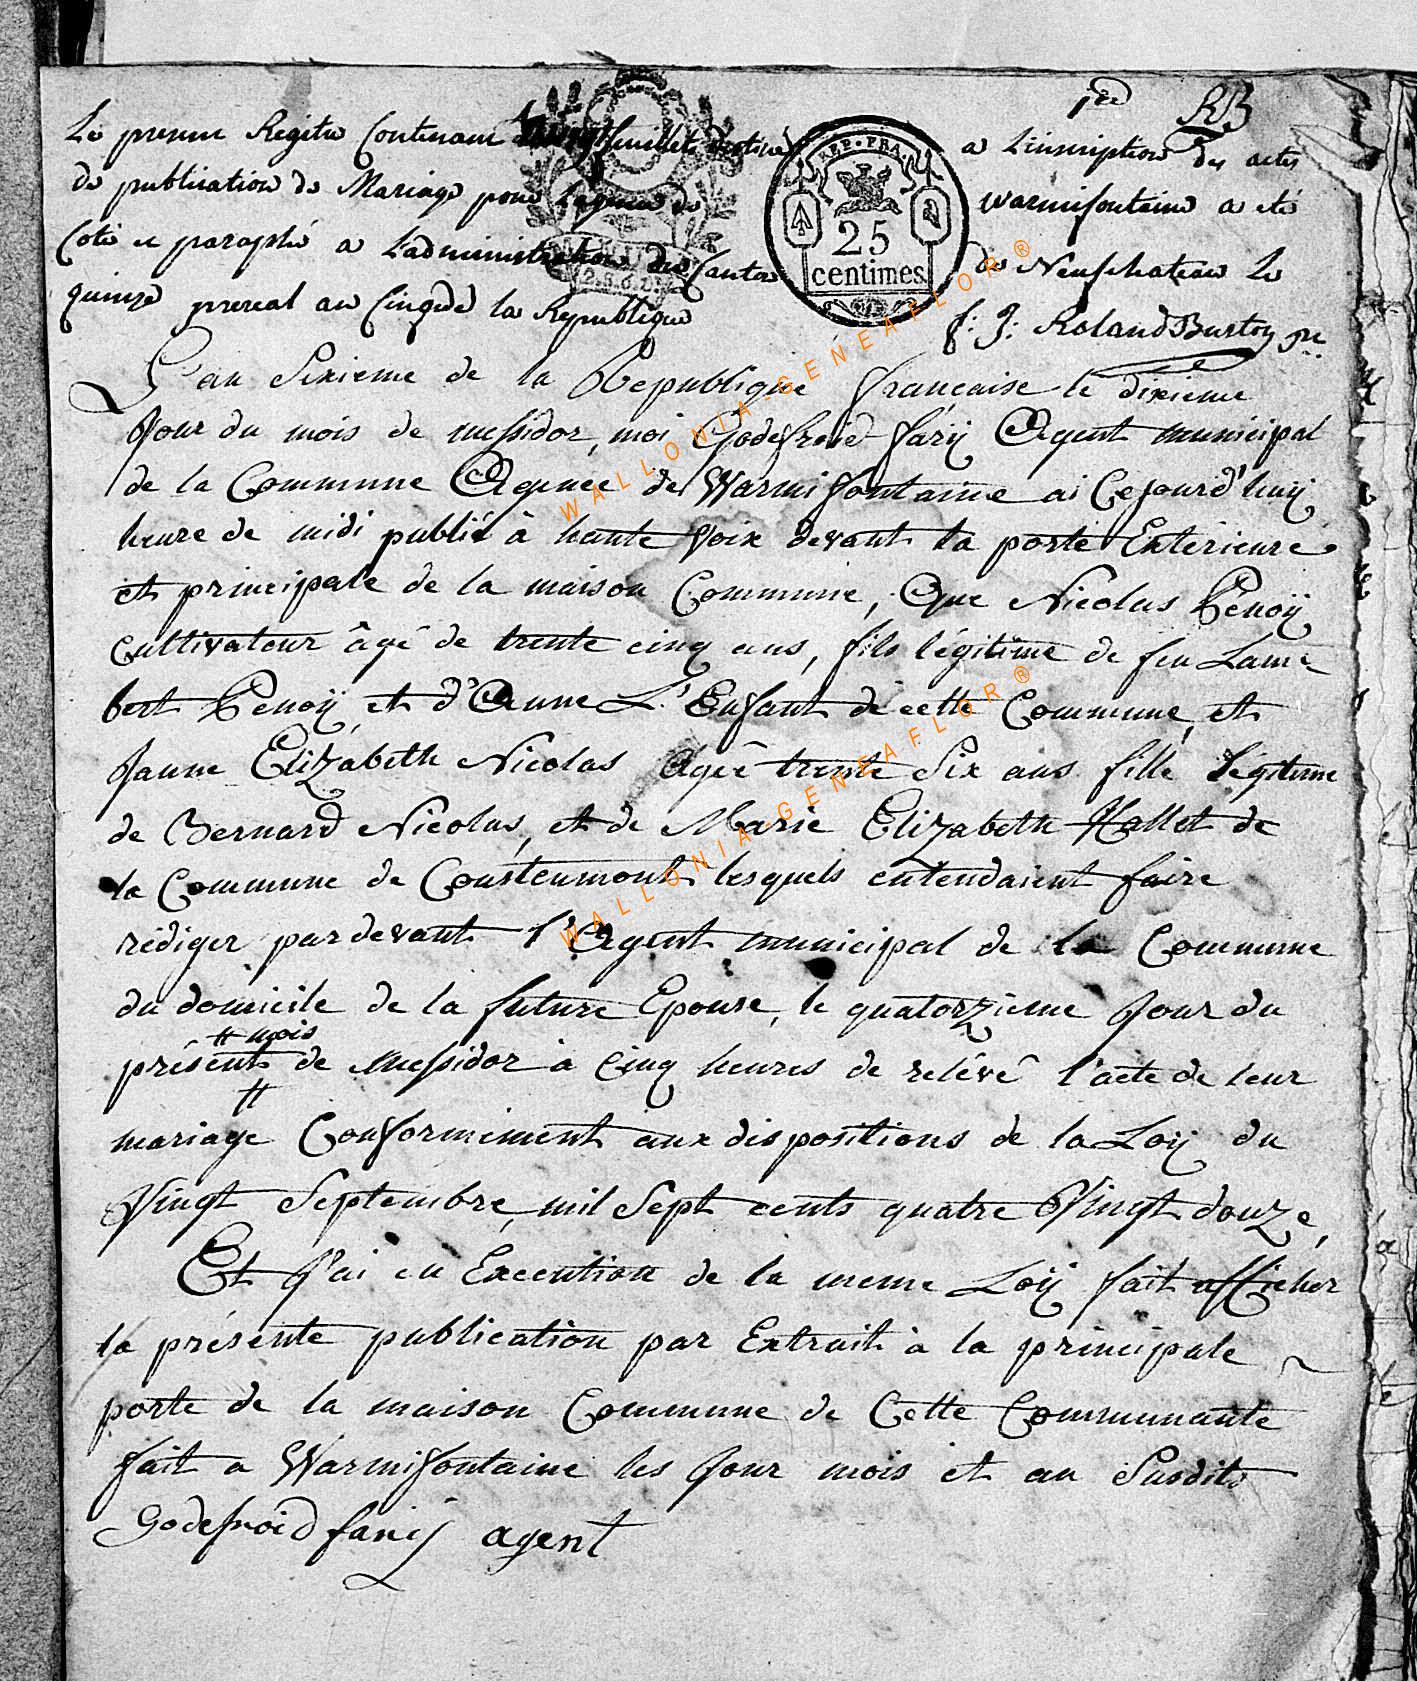 1re RB
Le present Registre Contenant feuillets destiné a L'inscription des actes
de publication de Mariage pour L'agence de Warmifontaine a eté
Coté et paraphé a L'administration du Canton de Neufchateau Le
quinze prereal an Cinq de la Republique
f: J: Roland Burton
REP. FRA.
25
centimes
L'an Sixieme de la Republique française le dixieme
Jour du mois de messidor, moi Godefroid farÿ Agent municipal
de la Commune Agence de Warmifontaine ai Cejourd'huy
heure de midi publié à haute Voix devant la porte Exterieure
et principale de la maison Commune, Que Nicolas Pénoÿ
Cultivateur âgé de trente cinq ans, fils légitime de feu Lam-
bert Penoÿ, et d'Anne L'Enfant de cette Commune, et
Jeanne Elizabeth Nicolas Agée trente Six ans fille Légitime
de Bernard Nicolas, et de Marie Elizabeth Hallet de
la Commune de Cousteumont lesquels entendaient faire
rédiger pardevant l'Agent municipal de la Commune
du domicile de la future Epouse, le quatorzieme Jour du
# mois
présent # de Messidor à Cinq heures de relévé l'acte de leur
mariage Conformement aux dispositions de la Loÿ du
Vingt Septembre, mil Sept cents quatre Vingt douze,
Et J'ai en Execution de la meme Loÿ fait afficher
la présente publication par Extrait à la principale ~
porte de la maison Commune de Cette Communauté
fait a Warmifontaine les Jour mois et an Susdits
Godefroid farij agent
WALLONIA-GENEAFLOR®
WALLONIA-GENEAFLOR®